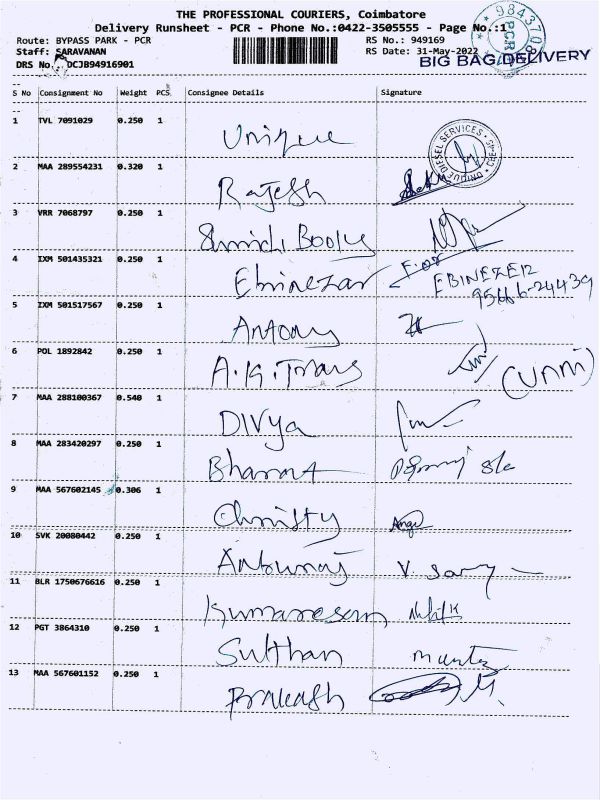 THE PROFESSIONAL COURIERS, Coimbatore
Delivery Runsheet - PCR - Phone No.:0422-3505555 - Page No.:1
Route: BYPASS PARK - PCR
RS No.: 949169
Staff: SARAVANAN
RS Date: 31-May-2022
DRS No. DCJB94916901
BIG BAG DELIVERY
PCR
S No Consignment No Weight PCS Consignee Details Signature
1 TVL 7091029 0.250 1 Unique
UNIQUE DIESEL SERVICES
2 MAA 289554231 0.320 1 Rajesh
3 VRR 7068797 0.250 1
4 IXM 501435321 0.250 1 Ebinezar For EBINEZER
5 IXM 501517567 0.250 1 Antony
6 POL 1892842 0.250 1 A.K.Trans (UNNI)
7 MAA 288100367 0.540 1 Divya
8 MAA 283420297 0.250 1 Bharat
9 MAA 567602145 0.306 1 Christy
10 SVK 20080442 0.250 1
11 BLR 1750676616 0.250 1 Kumaresan
12 PGT 3864310 0.250 1 Sulthan
13 MAA 567601152 0.250 1 Prakash